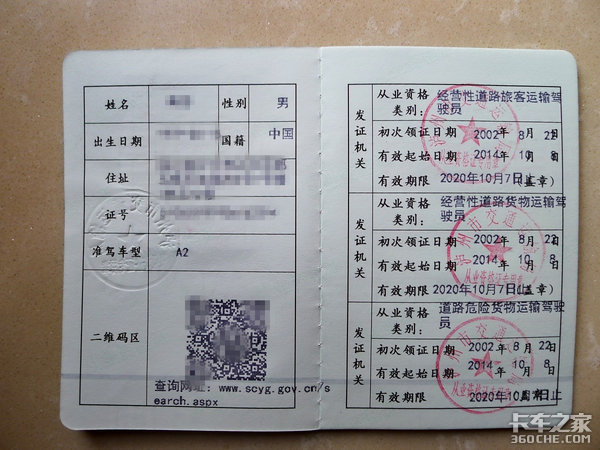 姓名
性别 男
出生日期
国籍 中国
住址
证号
准驾车型 A2
二维码区
查询网址：www.scyg.gov.cn/s
earch.aspx
发证机关
从业资格类别：经营性道路旅客运输驾
驶员
初次领证日期 2002年 8月 22日
有效起始日期 2014年 10月 8日
有效期限 2020年10月7日止(盖章)
发证机关
从业资格类别：经营性道路货物运输驾
驶员
初次领证日期 2002年 8月 22日
有效起始日期 2014年 10月 8日
有效期限 2020年10月7日止(盖章)
发证机关
从业资格类别：道路危险货物运输驾驶
员
初次领证日期 2002年 8月 22日
有效起始日期 2014年 10月 8日
有效期限 2020年10月
州市交通
从业资格证专用章
卡车之家
360CHE.COM